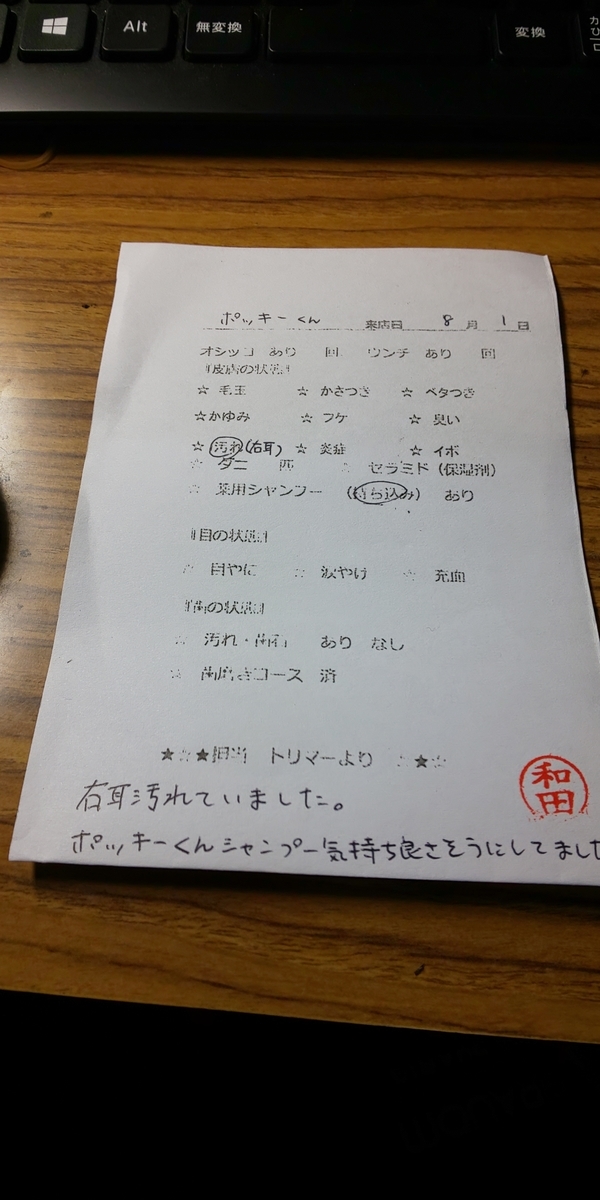 Alt 無変換 変換 カ ひ ロ
ポッキーくん 来店日 8月 1日
オシッコ あり 回 ウンチ あり 回
『皮膚の状態』
☆ 毛玉 ☆ かさつき ☆ ベタつき
☆かゆみ ☆ フケ ☆ 臭い
☆ 汚れ(右耳) ☆ 炎症 ☆ イボ
☆ ダニ 匹 ☆ セラミド(保湿剤)
☆ 薬用シャンプー (持ち込み) あり
『目の状態』
☆ 目やに ☆ 涙やけ ☆ 充血
『歯の状態』
☆ 汚れ・歯石 あり なし
☆ 歯磨きコース 済
★☆★担当 トリマーより ☆★☆
和田
右耳汚れていました。
ポッキーくんシャンプー気持ち良さそうにしてました